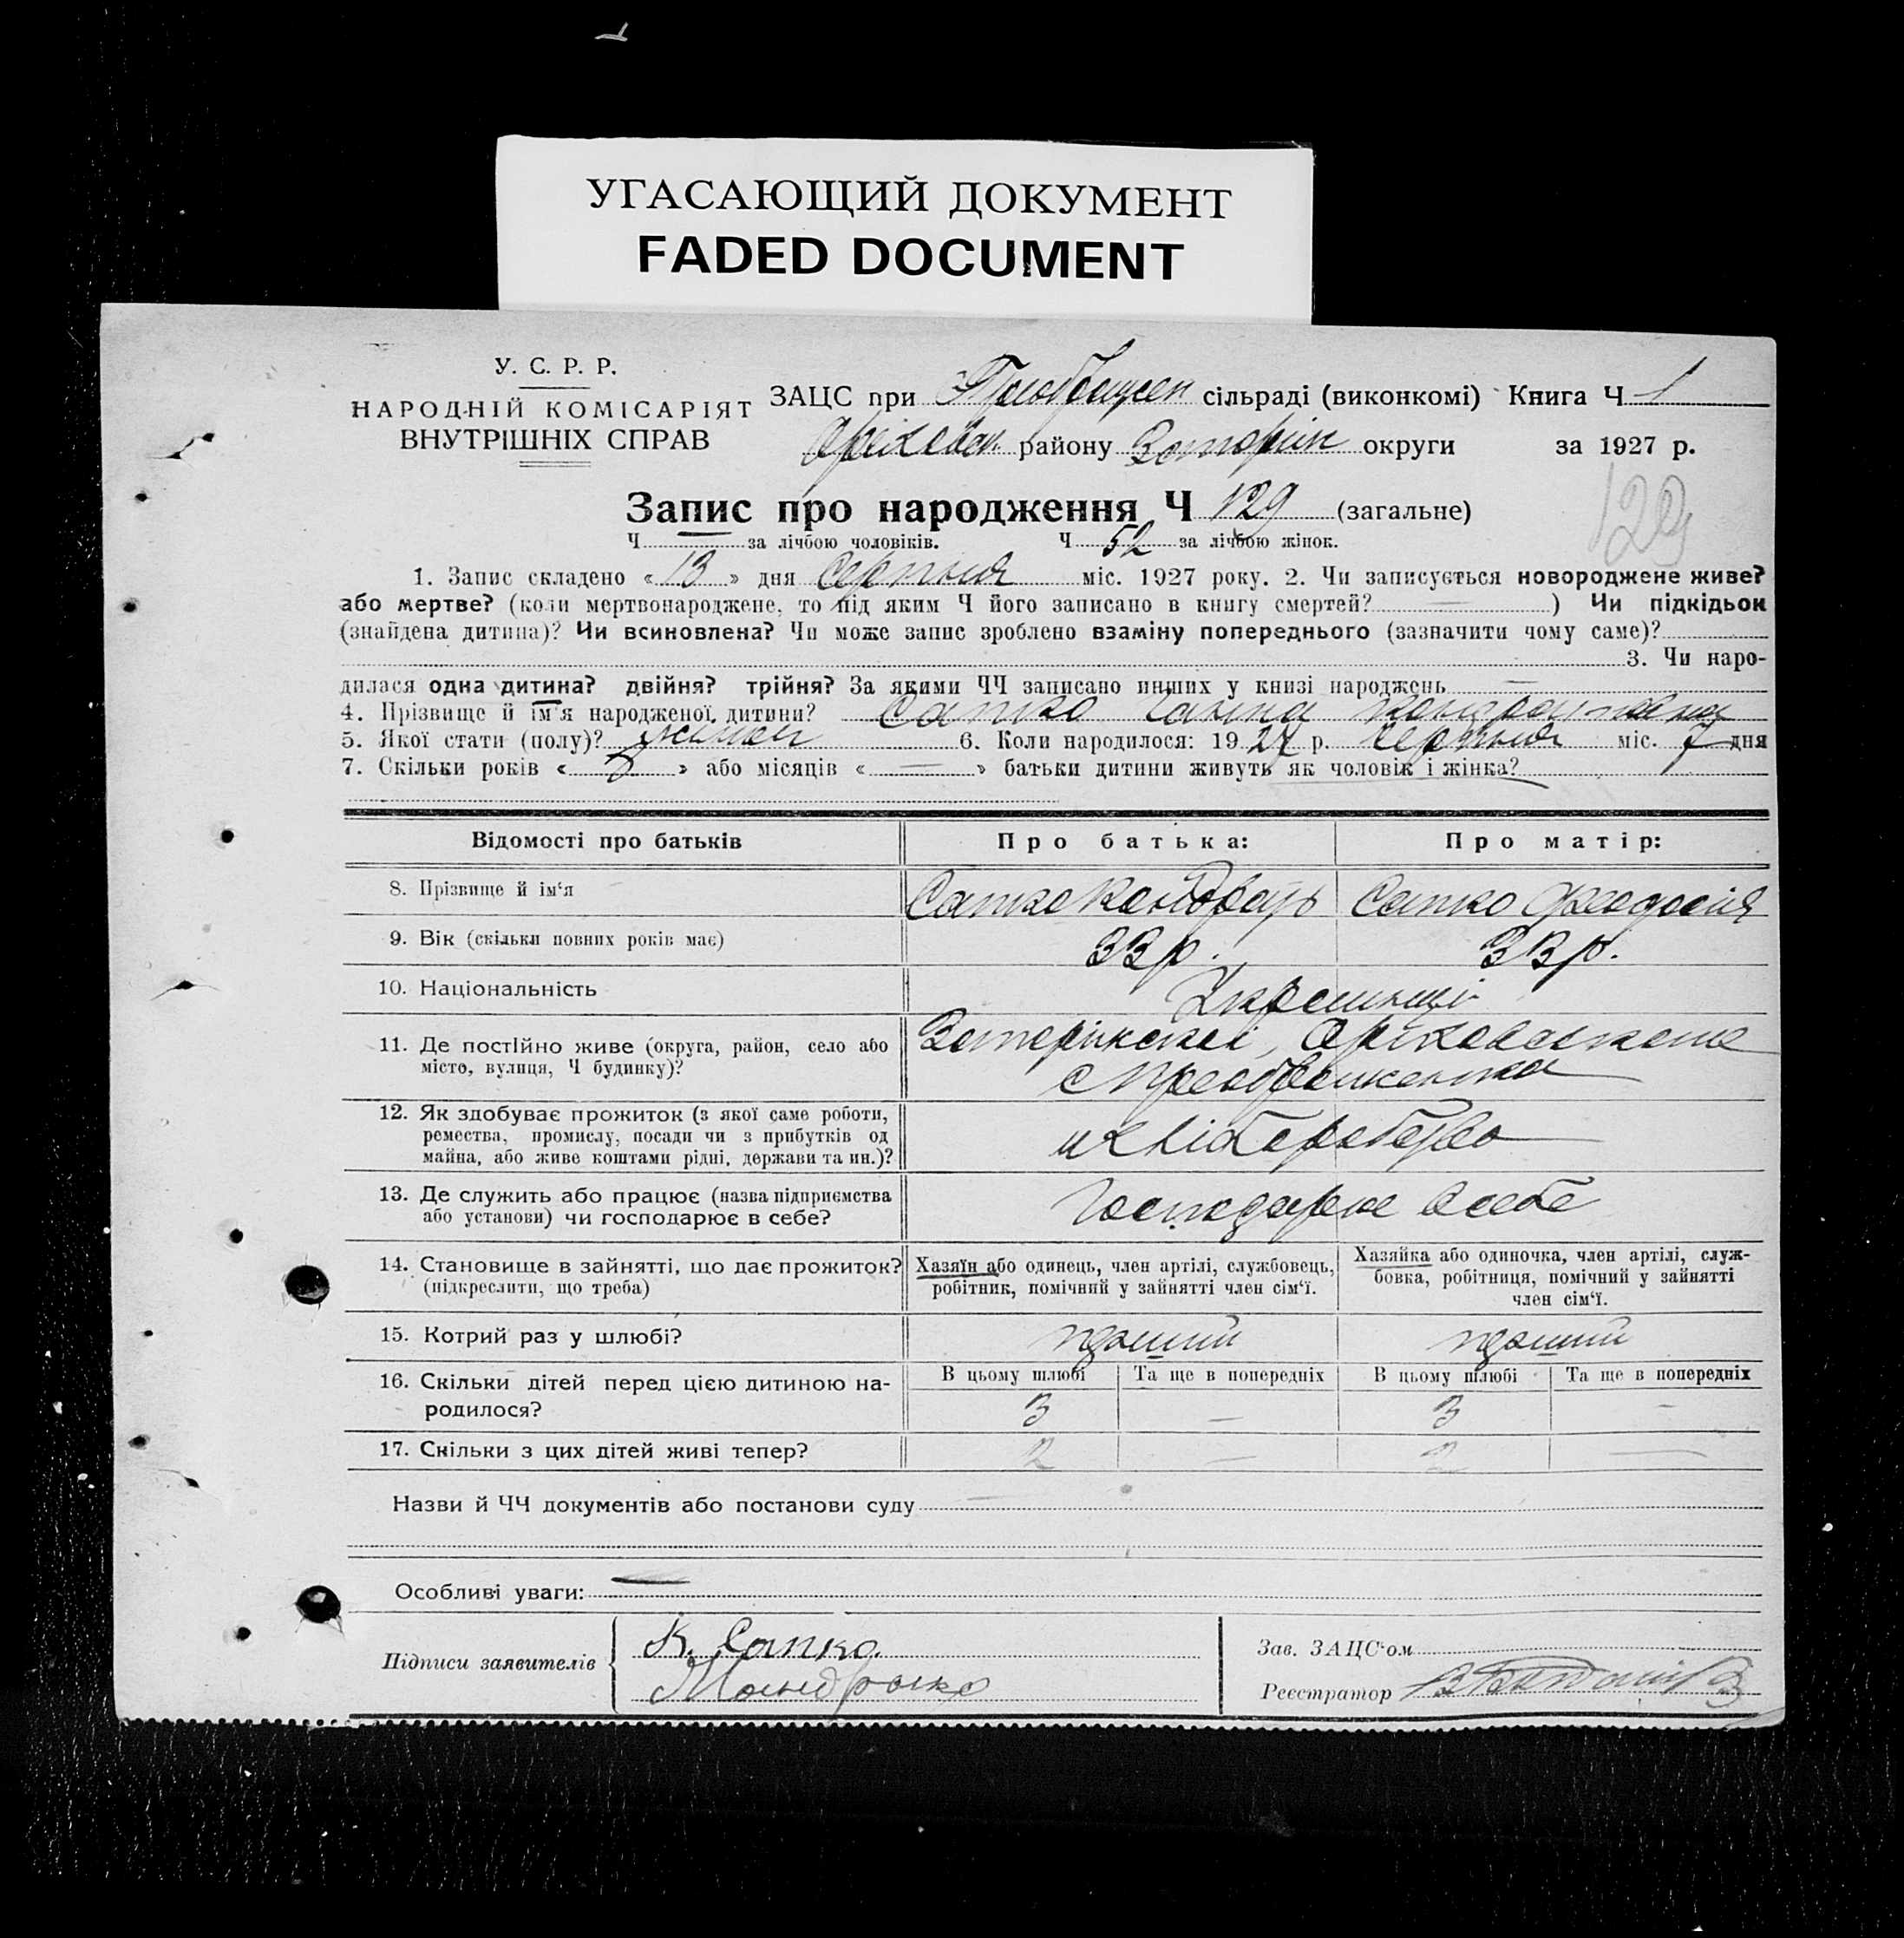 УГАСАЮЩИЙ ДОКУМЕНТ
FADED DOCUMENT
У. С. Р. Р.
НАРОДНІЙ КОМІСАРІЯТ
ВНУТРІШНІХ СПРАВ
ЗАЦС при сільраді (виконкомі) Книга Ч 1
району округи за 1927 р.
129
Запис про народження Ч 129 (загальне)
Ч — за лічбою чоловіків. Ч 52 за лічбою жінок.
1. Запис складено « 13 » дня Серпня міс. 1927 року. 2. Чи записується новороджене живе?
або мертве? (коли мертвонароджене, то під яким Ч його записано в книгу смертей? — ) Чи підкідьок
(знайдена дитина)? Чи всиновлена? Чи може запис зроблено взаміну попереднього (зазначити чому саме)?
3. Чи наро-
дилася одна дитина? двійня? трійня? За якими ЧЧ записано инших у книзі народжень —
4. Прізвище й ім'я народженої дитини? Сапко Ганна
5. Якої стати (полу)? 6. Коли народилося: 1927 р. Серпня міс. 7 дня
7. Скільки років « » або місяців « — » батьки дитини живуть як чоловік і жінка?
Відомості про батьків Про батька: Про матір:
8. Прізвище й ім'я Сапко Кондрать Сапко Феодосія
9. Вік (скільки повних років має) 33 р. 33 р.
10. Національність Українці
11. Де постійно живе (округа, район, село або
місто, вулиця, Ч будинку)?
с Преображенка
12. Як здобуває прожиток (з якої саме роботи,
ремества, промислу, посади чи з прибутків од
майна, або живе коштами рідні, держави та ин.)?
хліборобство
13. Де служить або працює (назва підприємства
або установи) чи господарює в себе?
Господарює в себе
14. Становище в зайнятті, що дає прожиток?
(підкреслити, що треба)
Хазяїн або одинець, член артілі, службовець,
робітник, помічний у зайнятті член сім'ї.
Хазяйка або одиночка, член артілі, служ-
бовка, робітниця, помічний у зайнятті
член сім'ї.
15. Котрий раз у шлюбі?
16. Скільки дітей перед цією дитиною на-
родилося?
В цьому шлюбі Та ще в попередніх В цьому шлюбі Та ще в попередніх
3 — 3 -
17. Скільки з цих дітей живі тепер? 2 — 2 —
Назви й ЧЧ документів або постанови суду —
Особливі уваги: —
Підписи заявителів
К. Сапко.
Зав. ЗАЦС'ом
Реєстратор